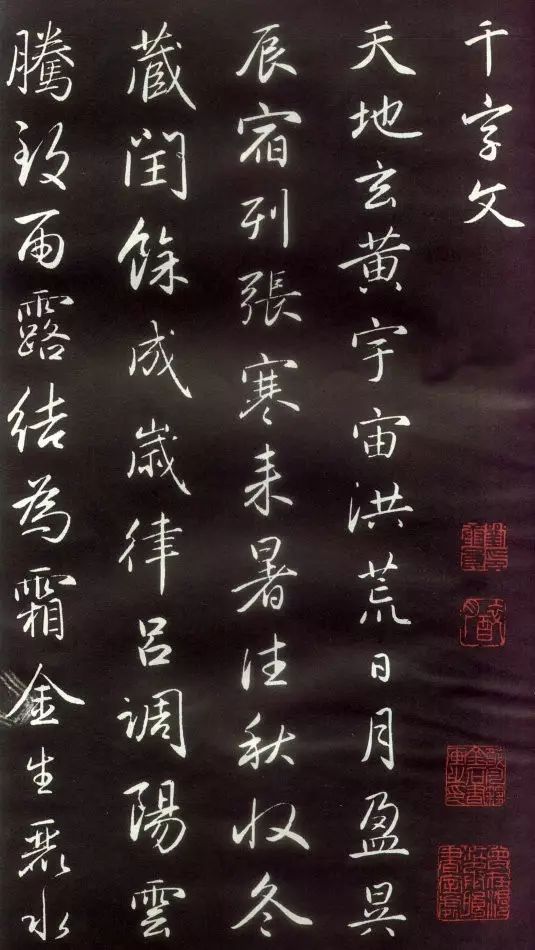 千字文
天地玄黃宇宙洪荒日月盈昃
辰宿列張寒来暑往秋收冬
藏閏餘成歲律呂調陽雲
騰致雨露結為霜金生麗水